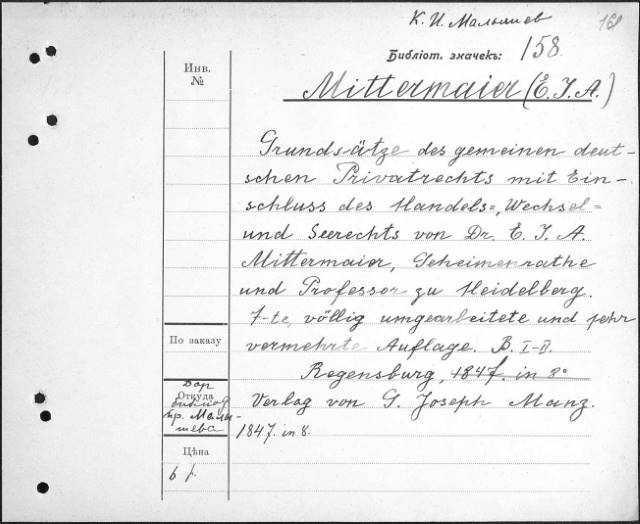 К. И. Малышев
161
Библіот. значекъ: 158.
Mittermaier (E. J. A.)
Инв.
№
Grundsätze des gemeinen deut-
schen Privatrechts mit Ein-
schluss des Handels=, Wechsel=
und Seerechts von Dr. E. J. A.
Mittermaier, Geheimenrathe
und Professor zu Heidelberg.
7-te, völlig umgearbeitete und sehr
vermehrte Auflage. B. I-II.
По заказу
Regensburg, 1847. in 8º
Verlag von G. Joseph Manz.
1847. in 8.
Дар
Откуда
библиот
пр. Малы-
шева
Цѣна
6 р.